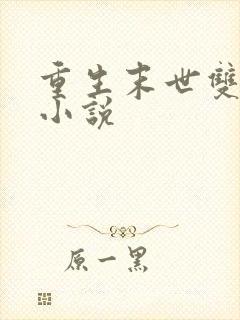 重生末世雙
小說
原一黑